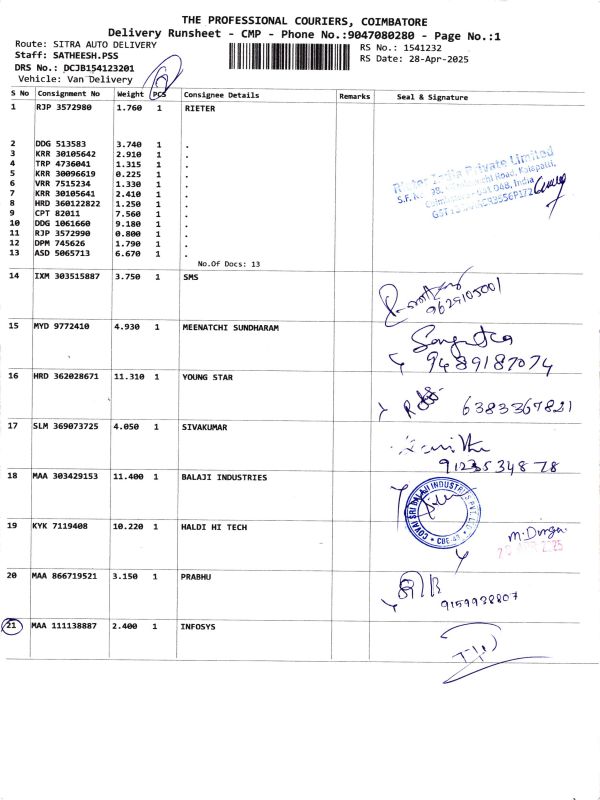 THE PROFESSIONAL COURIERS, COIMBATORE
Delivery Runsheet - CMP - Phone No.:9047080280 - Page No.:1
Route: SITRA AUTO DELIVERY
Staff: SATHEESH.PSS
DRS No.: DCJB154123201
Vehicle: Van Delivery
RS No.: 1541232
RS Date: 28-Apr-2025
S No Consignment No Weight PCS Consignee Details Remarks Seal & Signature
1 RJP 3572980 1.760 1 RIETER
2 DDG 513583 3.740 1 .
3 KRR 30105642 2.910 1 .
4 TRP 4736041 1.315 1 .
5 KRR 30096619 0.225 1 .
6 VRR 7515234 1.330 1 .
7 KRR 30105641 2.410 1 .
8 HRD 360122822 1.250 1 .
9 CPT 82011 7.560 1 .
10 DDG 1061660 9.180 1 .
11 RJP 3572990 0.800 1 .
12 DPM 745626 1.790 1 .
13 ASD 5065713 6.670 1 .
No.Of Docs: 13
Rieter India Private Limited
14 IXM 303515887 3.750 1 SMS
9629105001
15 MYD 9772410 4.930 1 MEENATCHI SUNDHARAM
Sangeetha
9489187074
16 HRD 362028671 11.310 1 YOUNG STAR
6383367821
17 SLM 369073725 4.050 1 SIVAKUMAR
9123534878
18 MAA 303429153 11.400 1 BALAJI INDUSTRIES
COVAI SRI BALAJI INDUSTRIES PVT LTD
CBE-49
19 KYK 7119408 10.220 1 HALDI HI TECH
M. Durga
20 MAA 866719521 3.150 1 PRABHU
9159938807
21 MAA 111138887 2.400 1 INFOSYS